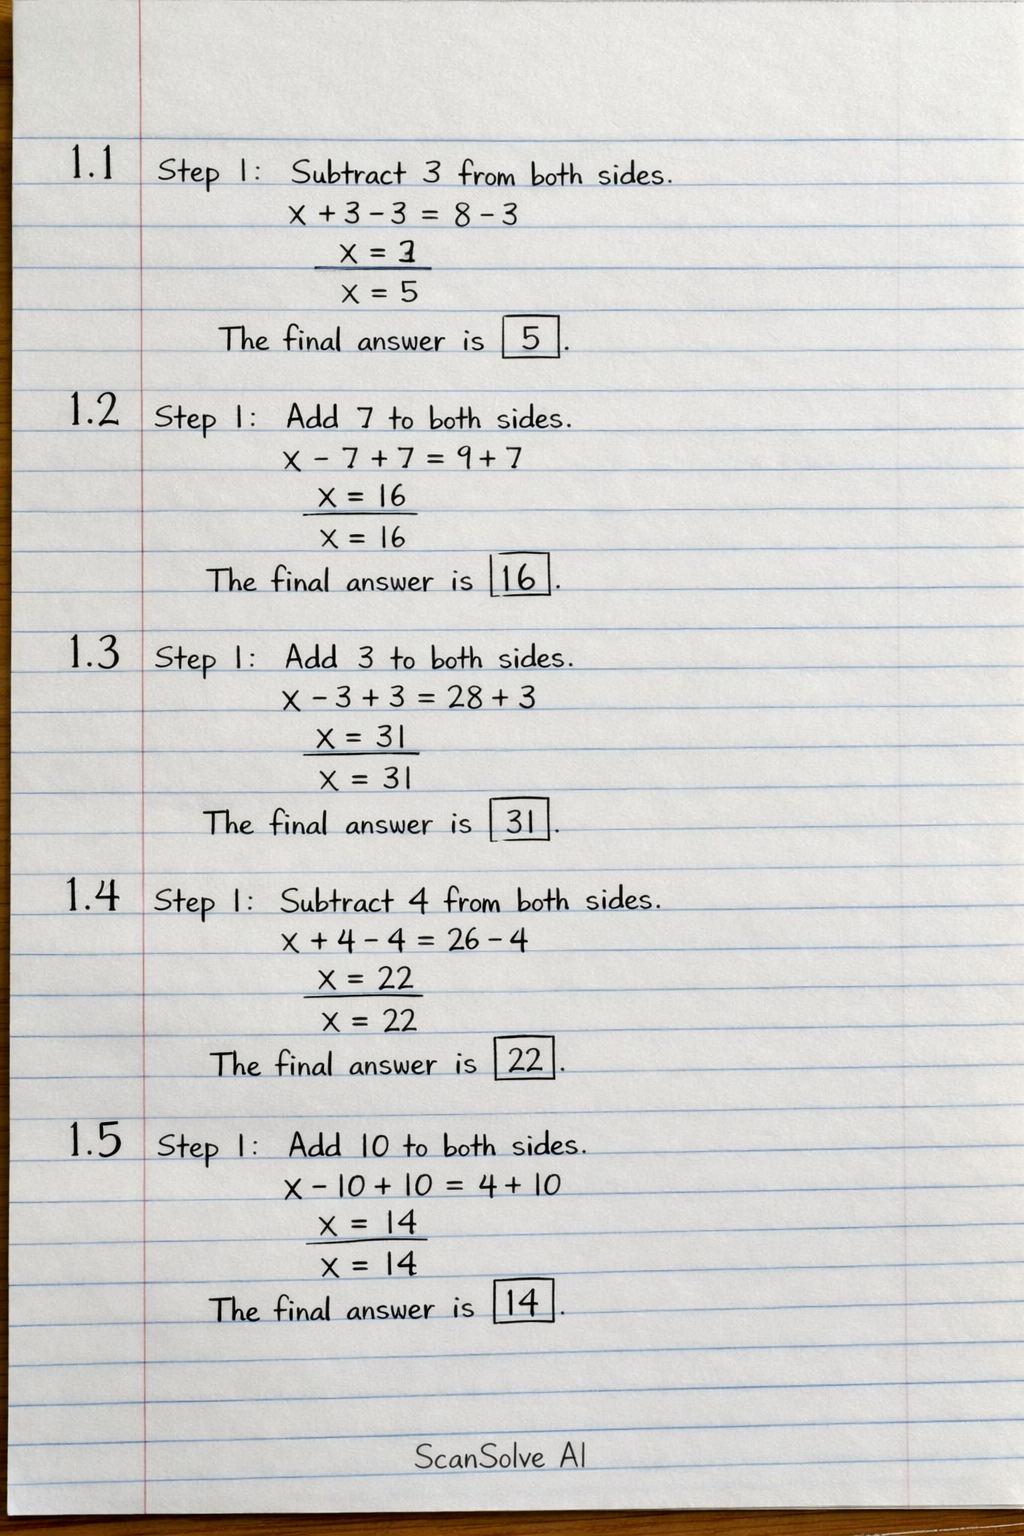 1.1 Step 1: Subtract 3 from both sides.
x + 3 - 3 = 8 - 3
x =
x = 5
The final answer is 5.
1.2 Step 1: Add 7 to both sides.
x - 7 + 7 = 9 + 7
x = 16
x = 16
The final answer is 16.
1.3 Step 1: Add 3 to both sides.
x - 3 + 3 = 28 + 3
x = 31
x = 31
The final answer is 31.
1.4 Step 1: Subtract 4 from both sides.
x + 4 - 4 = 26 - 4
x = 22
x = 22
The final answer is 22.
1.5 Step 1: Add 10 to both sides.
x - 10 + 10 = 4 + 10
x = 14
x = 14
The final answer is 14.
ScanSolve AI